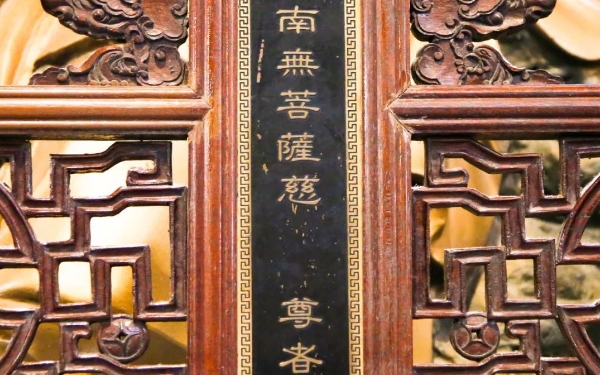 南無菩薩慈 尊者